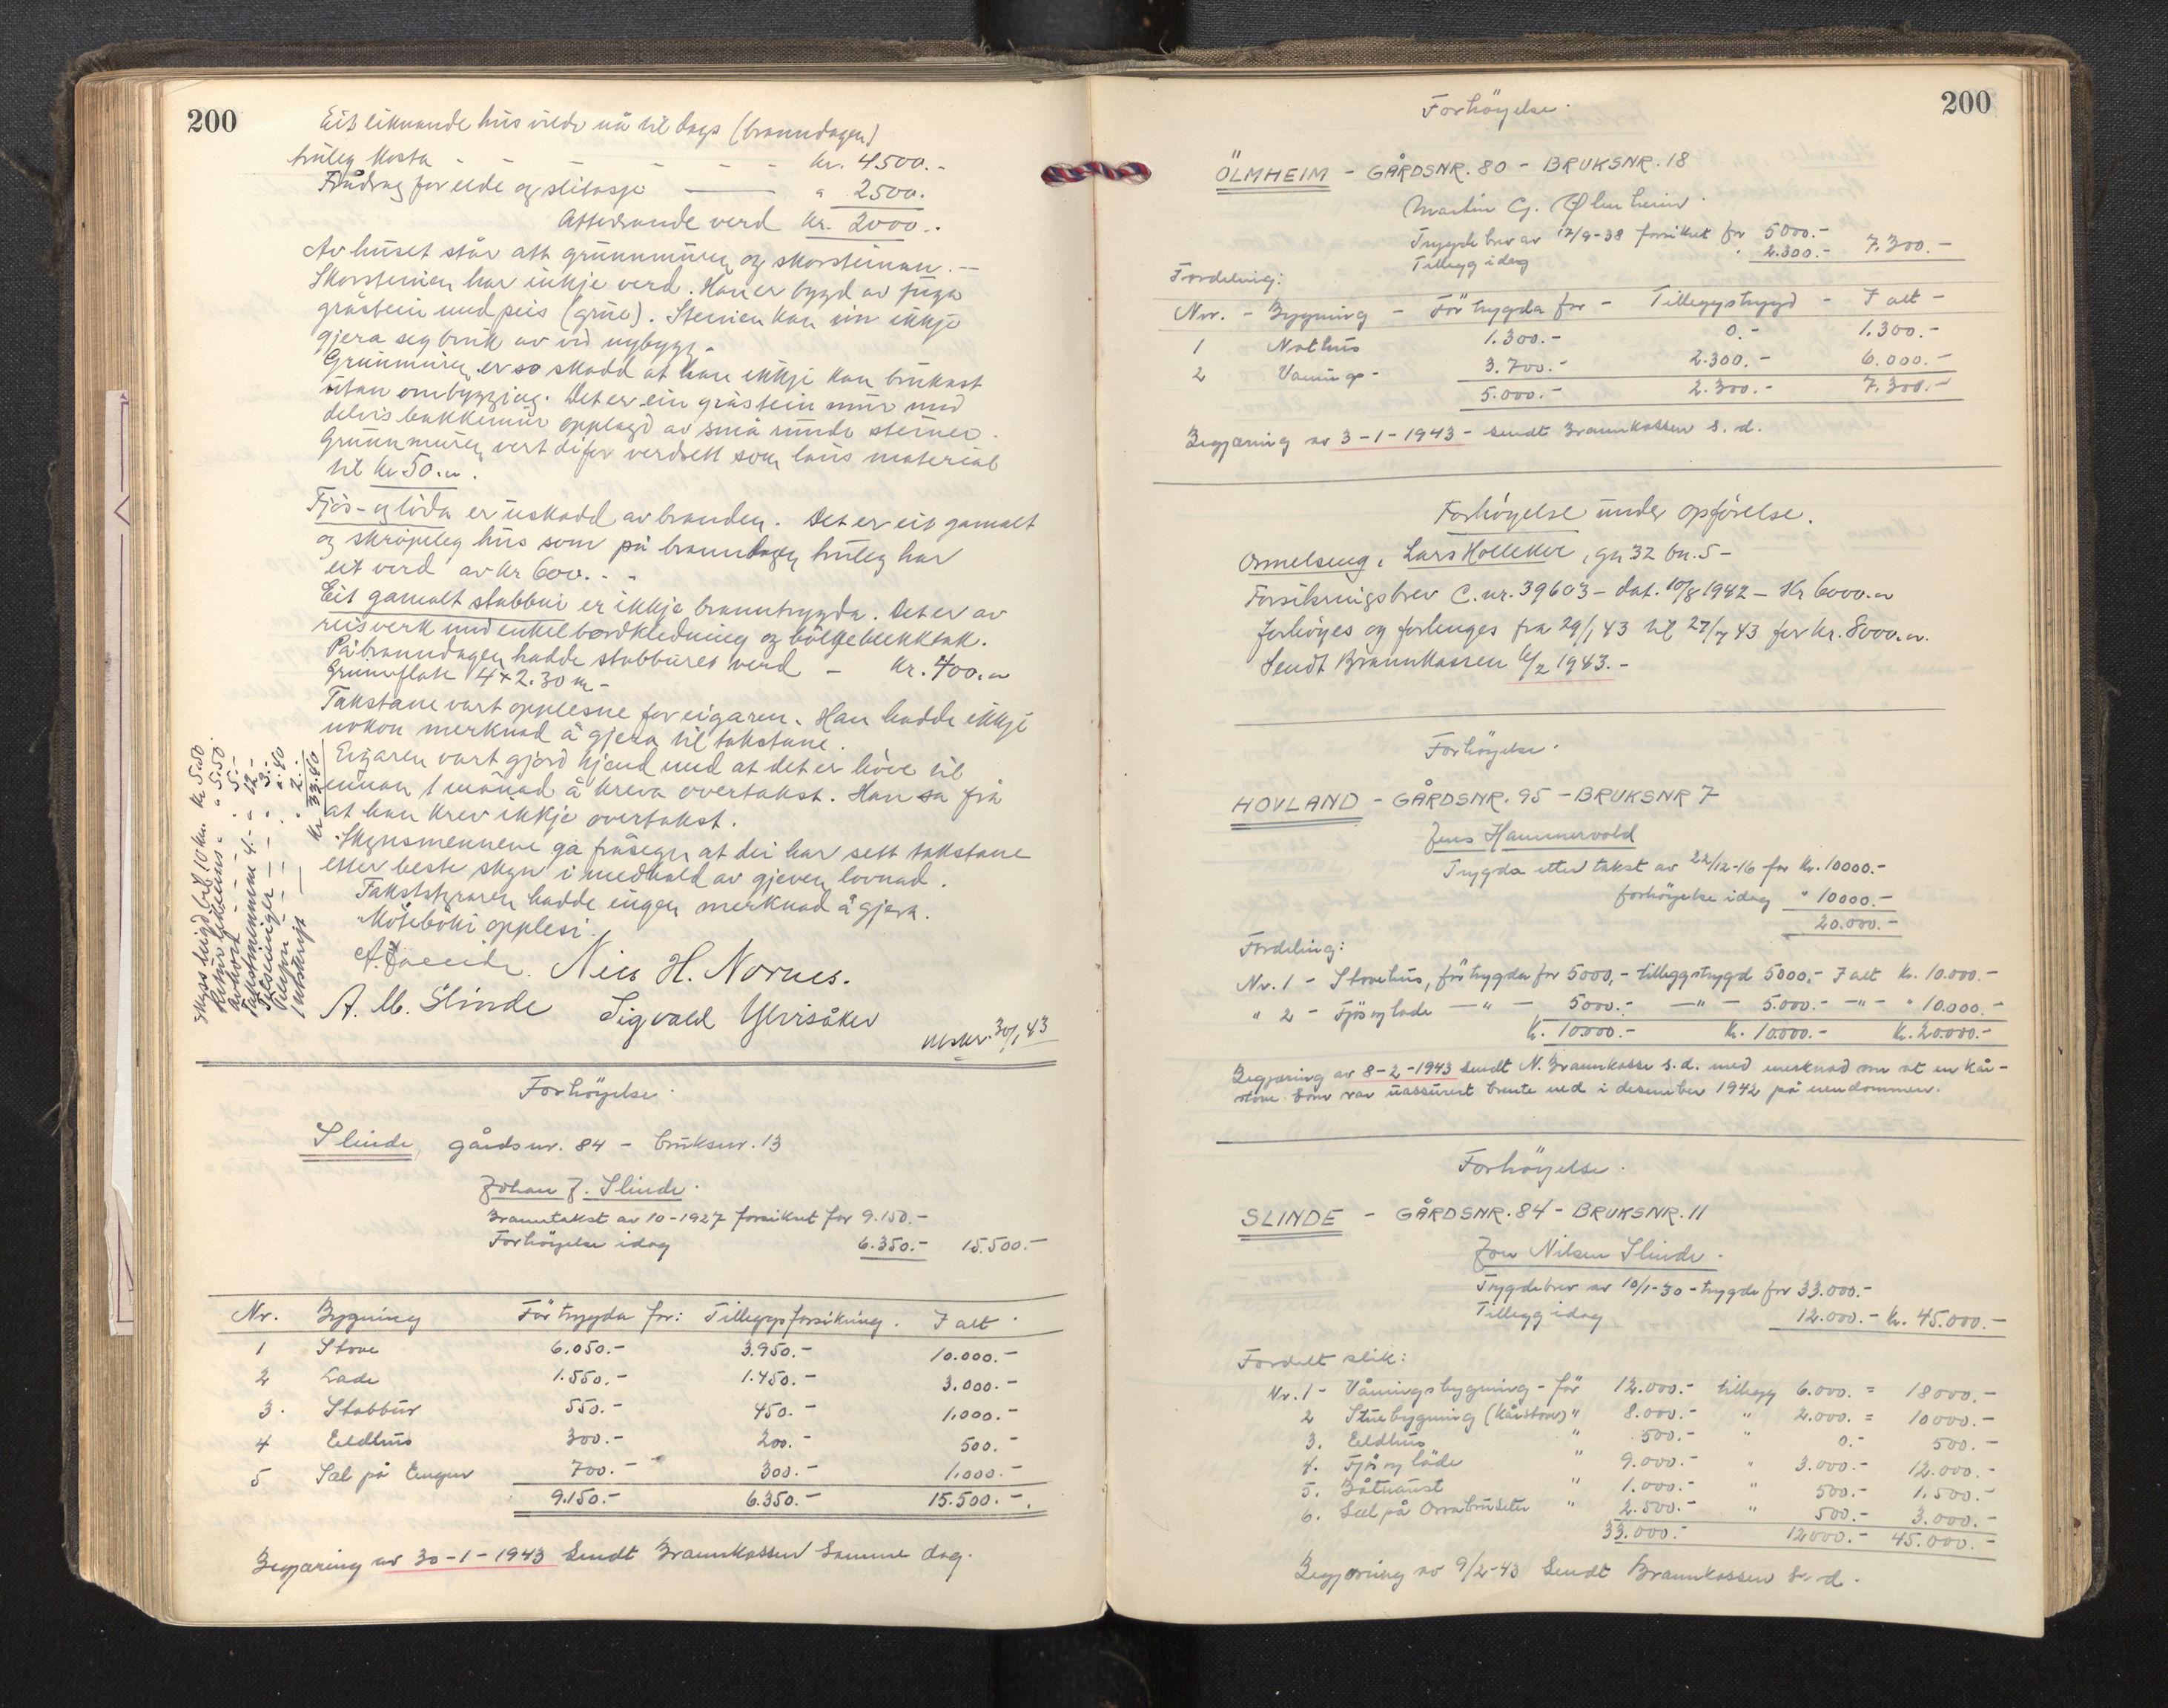 200
Eit liknande hus vilde nå til dags (branndagen)
truleg kosta - - - - - - - kr. 4500.-
Frådrag for elde og slitasje — " 2500.
Attverande verd kr. 2000.-
Av huset står att grunnmuren og skorsteinen. —
Skorsteinen har inkje verd. Han er bygd av
gråstein med peis (grue). Steinen kan ein ikkje
gjera seg bruk av vid nybygg.
Grunnmuren er so skadd at han ikkje kan brukast
utan ombygging. Det er ein gråstein mur med
delvis bakkemur opplagd av små runde steinar.
Grunnmuren vert difor verdsett som laus material
til kr 50.
Fjös- og löda er uskadd av branden. Det er eit gamalt
og skröpeleg hus som på branndagen truleg har
eit verd av kr 600. - -
Eit gamalt stabbur er ikkje branntrygda. Det er av
reisverk med enkel bordkledning og bölgeblekktak.
På branndagen hadde stabburet verd - kr. 400.
Grunnflate 4 x 2.30 m -
Takstane vart opplesne for eigaren. Han hadde ikkje
nokon merknad å gjera til takstane.
Eigaren vart gjord kjend med at det er höve til
innan 1 månad å kreva overtakst. Han sa frå
at han krev ikkje overtakst.
Skynsmennene ga fråsegn at dei har sett takstane
etter beste skyn i medhald av gjeven lovnad.
Takststyraren hadde ingen merknad å gjera.
Möteboki opplesi.
Nils H. Nornes.
A. M. Slinde Sigvald Ylvisåker
utskr. 30/1 43
Skyss leigd bil 10 km. kr 5.50
" 5.50
5.-
Takstminimum 4.- " 12.-
3.-
-.40
Utskrift — " 2.-
Kr 33.40
Forhöyelse.
Slinde, gårdsnr. 84 - bruksnr. 13
Johan J. Slinde.
Branntakst av 10-1927 forsikret for 9.150.-
Forhöyelse idag 6.350.- 15.500.-
Nr. Bygning För trygda for: Tilleggsforsikring. I alt.
1 Stove 6.050.- 3.950.- 10.000.-
2 Lade 1.550.- 1.450.- 3.000.-
3. Stabbur 550.- 450.- 1.000.-
4 Eeldhus 300.- 200.- 500.-
5 Sel på Eengum 700.- 300.- 1.000.-
9.150.- 6.350.- 15.500.-.
Begjæring av 30-1-1943 Sendt Brannkassen samme dag.
200
Forhöyelse.
ÖLMHEIM - GÅRDSNR. 80 - BRUKSNR. 18
Martin G. Ølmheim.
Trygdebrev av 17/9-38 forsikret for 5000.-
Tillegg idag " 2.300.- 7.300.-
Fordeling:
Nr. - Bygning - För trygda for - Tilleggstrygd - I alt -
1 Nothus 1.300.- 0.- 1.300.-
2 Vaaningr- 3.700.- 2.300.- 6.000.-
5.000.- 2.300.- 7.300.-
Begjæring av 3-1-1943 - sendt Brannkassen s. d.
Forhöyelse under opförelse.
Ormelseng, Lars Hollekve, gn 32 bn. 5 -
Forsikringsbrev C. nr. 39603 - dat. 10/8 1942 - Kr 6000.
forhöyes og forlenges fra 29/1 43 til 27/4 43 for kr. 8000.
Sendt Brannkassen 6/2 1943. -
Forhöyelse.
HOVLAND - GÅRDSNR. 95 - BRUKSNR 7
Jens Hammervold
Trygda etter takst av 22/12-16 for kr. 10000.-
forhöyelse idag " 10000.-
20.000.-
Fordeling:
Nr. 1 - Stovehus, för trygda for 5000,- tilleggstrygd 5000.- I alt kr. 10.000.-
" 2 - Fjös og lade —"— 5000.- —"— 5.000.- —"— " 10.000.-
kr. 10.000.- kr. 10.000.- kr. 20.000.-
Begjæring av 8-2-1943 sendt N. Brannkasse s.d. med merknad om at en kår-
stove som var uassurert brente ned i desember 1942 på eiendommen.
Forhöyelse.
SLINDE - GÅRDSNR. 84 - BRUKSNR. 11
Jon Nilsen Slinde.
Trygdebrev av 10/1-30 - trygde for 33.000.-
Tillegg idag 12.000.- kr. 45.000.-
Fordelt slik:
Nr. 1 - Våningsbygning - för 12.000.- tillegg 6.000. = 18000.-
2 Stuebygning (kårstove) " 8.000.- " 2.000. = 10000.-
3. Eeldhus " 500.- " 0.- 500.-
4. Fjös og låde " 9.000.- " 3.000.- 12.000.-
5. Båtnaust " 1.000.- " 500.- 1.500.-
6. Sel på Orrabruseter " 2.500.- " 500.- 3.000.-
33.000.- 12000.- 45.000.-
Begjæring av 9/2-43 Sendt Brannkassen s. d.